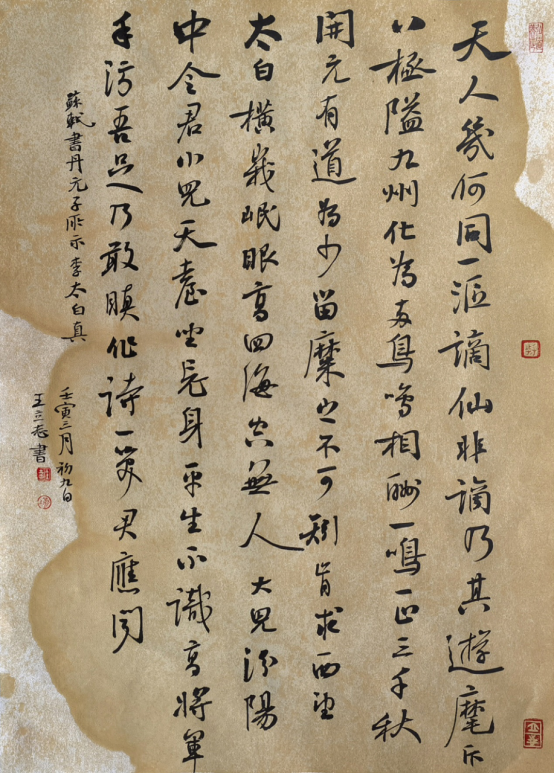 天人幾何同一漚謫仙非謫乃其遊麾斥
八極隘九州化為兩鳥鳴相酬一鳴一止三千秋
開元有道為少留縻之不可矧肯求西望
太白橫峨岷眼高四海空無人大兒汾陽
中令君小兒天臺坐忘身平生不識高將軍
手污吾足乃敢瞋作詩一笑君應聞
蘇軾書丹元子所示李太白真
壬寅三月初九日
王立志書